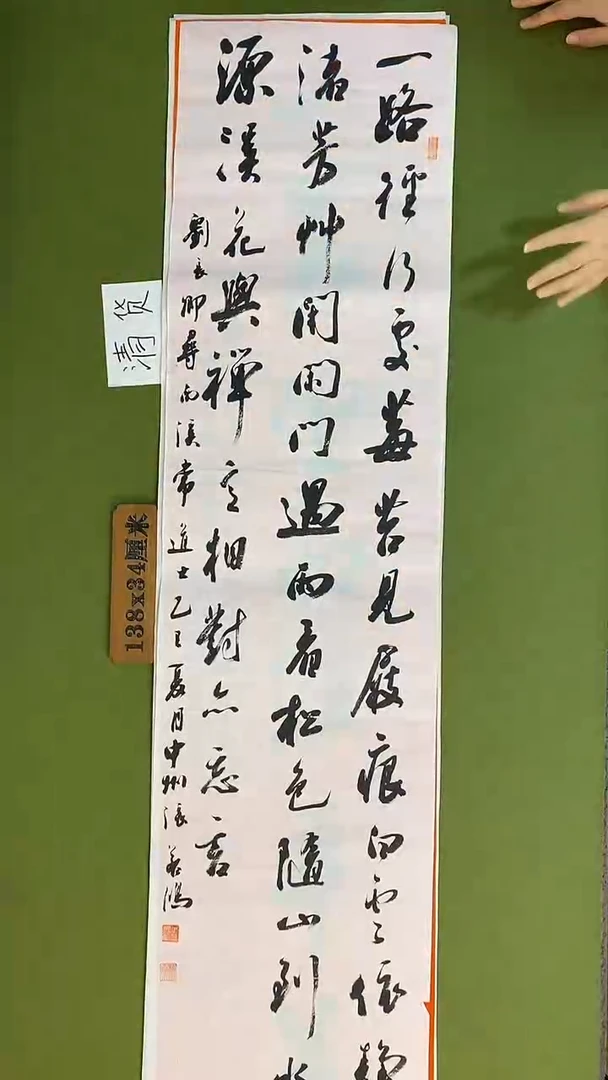 一路經行處莓苔見屐痕白雲依靜
渚芳艸閉閑門過雨看松色隨山到水
源溪花與禪意相對亦忘言
劉長卿尋南溪常道士乙巳夏月中州張
清货
138x34厘米